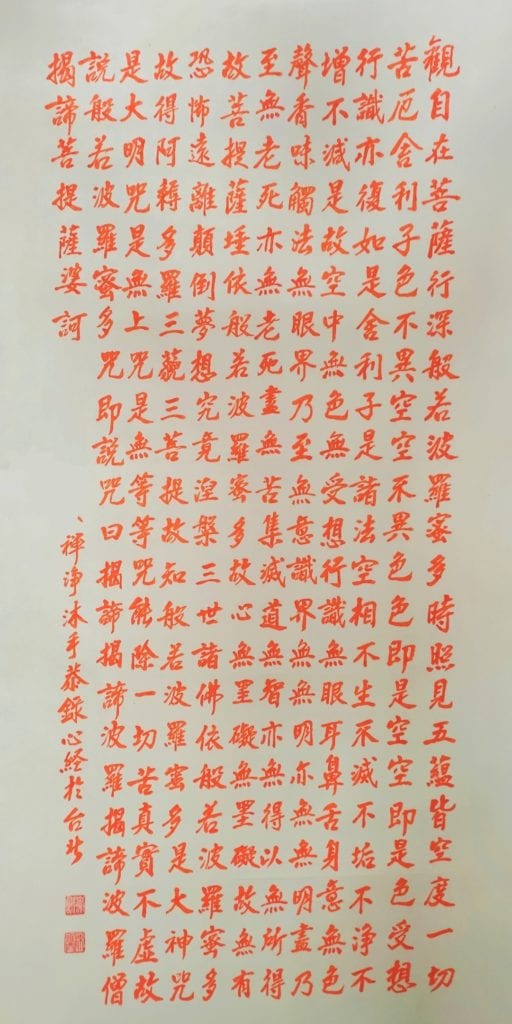 觀自在菩薩行深般若波羅蜜多時照見五蘊皆空度一切
苦厄舍利子色不異空空不異色色即是空空即是色受想
行識亦復如是舍利子是諸法空相不生不滅不垢不淨不
增不減是故空中無色無受想行識無眼耳鼻舌身意無色
聲香味觸法無眼界乃至無意識界無無明亦無無明盡乃
至無老死亦無老死盡無苦集滅道無智亦無得以無所得
故菩提薩埵依般若波羅蜜多故心無罣礙無罣礙故無有
恐怖遠離顛倒夢想究竟涅槃三世諸佛依般若波羅蜜多
故得阿耨多羅三藐三菩提故知般若波羅蜜多是大神咒
是大明咒是無上咒是無等等咒能除一切苦真實不虛故
說般若波羅蜜多咒即說咒曰揭諦揭諦波羅揭諦波羅僧
揭諦菩提薩婆訶
禪淨沐手恭錄心經於台北